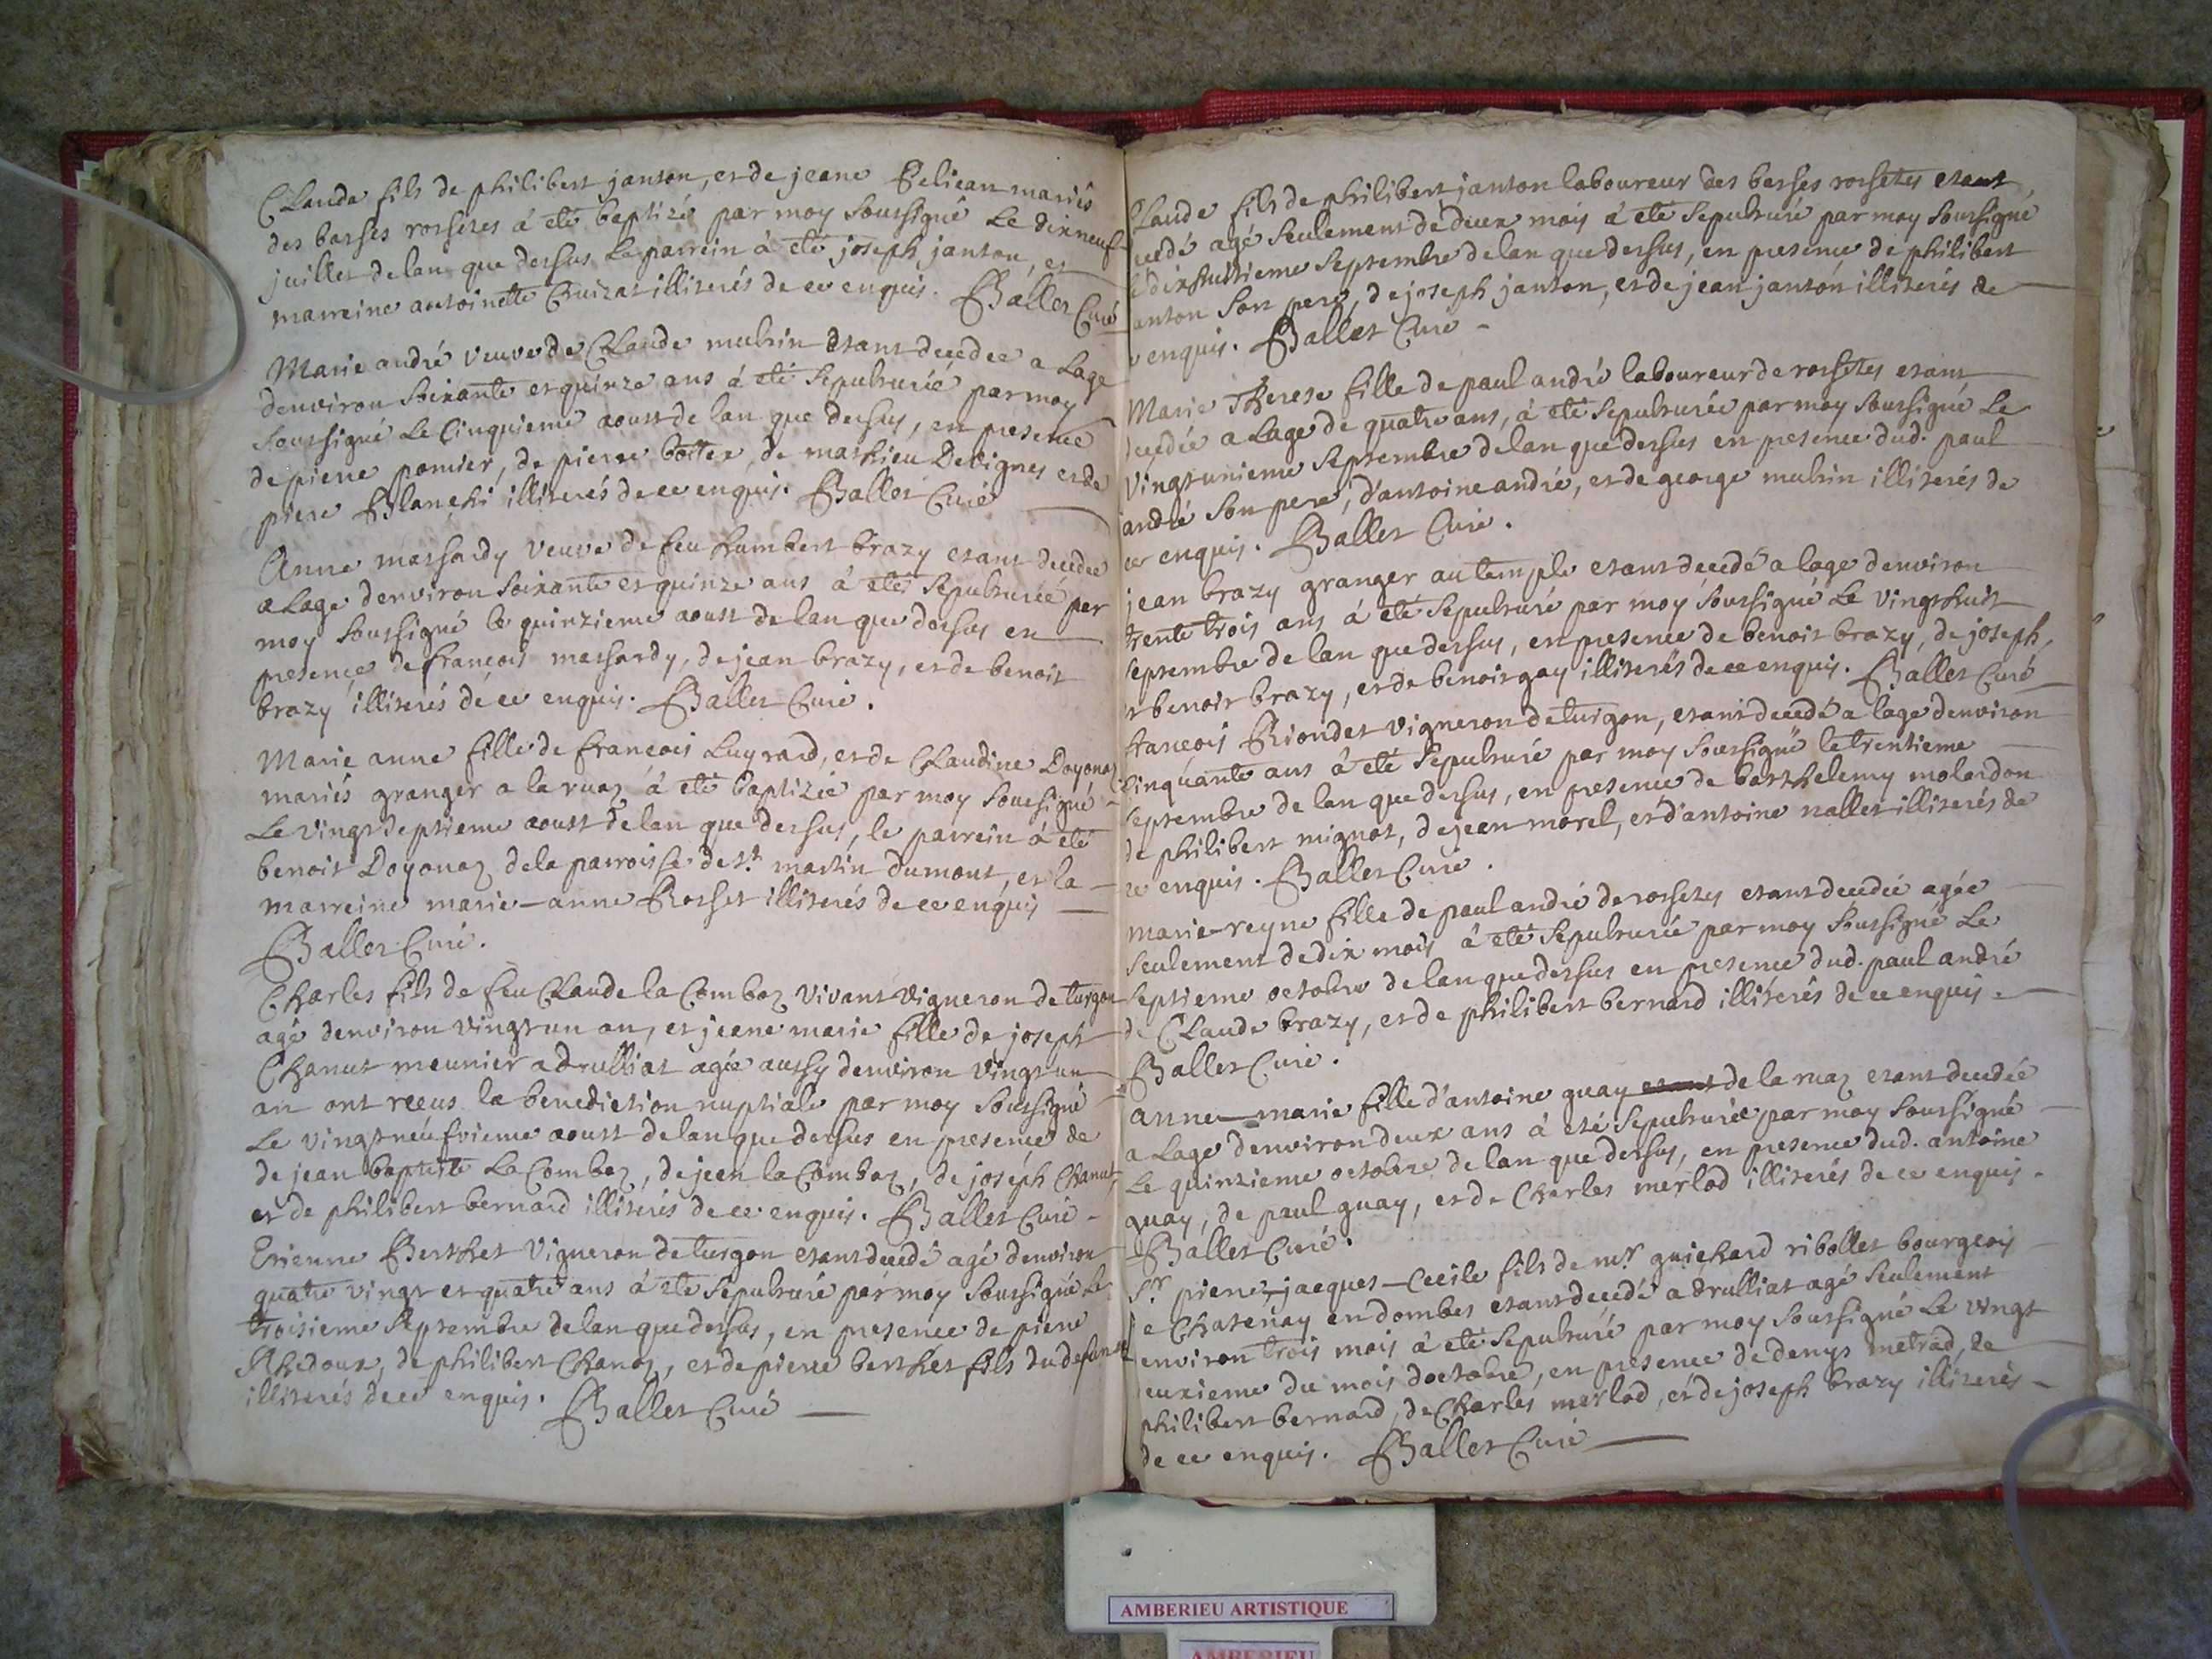 Claude fils de philibert janton, et de jeane Pelican mariés
des basses rossetes à eté baptizé par moy soussigné Le dixneuf
juillet de lan que dessus Le parrein à eté joseph janton, et
marreine antoinette Cruizat illiterés de ce enquis. Ballet Curé
Marie andré veuve de Claude muhin etant decedee a Lage
denviron soixante et quinze ans à eté sepulturée par moy
soussigné Le Cinquieme aoust de lan que dessus, en presence
de piere pomier, de pierre bottex, de mathieu Devignes et de
piere Blanchi illiterés de ce enquis. Ballet Curé
Anne massardy veuve de feu humbert brazy etant decedee
a Lage denviron soixante et quinze ans à eté sepulturée par
moy soussigné le quinzieme aoust de lan que dessus en
presence de françois massardy, de jean brazy, et de benoit
brazy illiterés de ce enquis. Ballet Curé.
Marie anne fille de françois Luyrard, et de Claudine Doyonaz
mariés granger a la ruaz à eté baptizée par moy soussigné
Le vingtseptieme aoust de lan que dessus, le parrein à eté
benoit Doyonaz de la parroisse de st. martin dumont, et la
marreine marie-anne Rosset illiterés de ce enquis
Ballet Curé.
Charles fils de feu Claude la Combaz vivant vigneron de turgon
agé denviron vingt un an, et jeane marie fille de joseph
Chanut meunier a drulliat agée aussy denviron vingt un
an ont receus la benediction nuptiale par moy soussigné
Le vingtneufvieme aoust de lan que dessus en presence de
de jean baptiste La Combaz, de jean la Combaz, de joseph Chanut
et de philibert bernard illiterés de ce enquis. Ballet Curé
Etienne Berthet vigneron de turgon etant decedé agé denviron
quatre vingt et quatre ans à eté sepulturé par moy soussigné Le
troisieme septembre de lan que dessus, en presence de piere
Rhidoux, de philibert Chanaz, et de pierre berthet fils du defunct
illiterés de ce enquis. Ballet Curé
Claude fils de philibert janton laboureur des basses rossetes etant
cedé agé seulement de deux mois à eté sepulturé par moy soussigné
le dixhuitieme septembre de lan que dessus, en presence de philibert
anton son pere, de joseph janton, et de jean janton illiterés de
ce enquis. Ballet Curé
Marie Therese fille de paul andré laboureur de rossetes etant
decedée a Lage de quatre ans, à eté sepulturée par moy soussigné Le
vingtunieme septembre de lan que dessus en presence dud. paul
andré son pere, d'antoine andré, et de george muhin illiterés de
ce enquis. Ballet Curé.
jean brazy granger au temple etant decedé a lage denviron
trente trois ans à eté sepulturé par moy soussigné Le vingthuit
septembre de lan que dessus, en presence de benoit brazy, de joseph,
et benoit brazy, et de benoit gay illiterés de ce enquis. Ballet Curé
françois Riondet vigneron de turgon, etant decedé a lage denviron
Cinquante ans à eté sepulturé par moy soussigné le trentieme
septembre de lan que dessus, en presence de barthelemy molardon
de philibert mignot, de jean morel, et d'antoine nallet illiterés de
ce enquis. Ballet Curé.
marie-reyne fille de paul andré de rossetes etant decedée agée
seulement de dix mois à eté sepulturée par moy soussigné Le
septieme octobre de lan que dessus en presence dud. paul andré
de Claude brazy, et de philibert bernard illiterés de ce enquis.
Ballet Curé.
anne-marie fille d'antoine guay etant de la ruaz etant decedée
a Lage denviron deux ans à eté sepulturée par moy soussigné
Le quinzieme octobre de lan que dessus, en presence dud. antoine
guay, de paul guay, et de Charles merlod illiterés de ce enquis.
Ballet Curé.
Sr. piere-jacques-Cecile fils de mr. guichard ribollet bourgeois
de Chatenay en dombes etant decedé a drulliat agé seulement
denviron trois mois à eté sepulturé par moy soussigné Le vingt
euxieme du mois doctobre, en presence de denys metrad, de
philibert bernard, de Charles merlod, et de joseph brazy illiterés
de ce enquis. Ballet Curé
AMBERIEU ARTISTIQUE
AMBERIEU